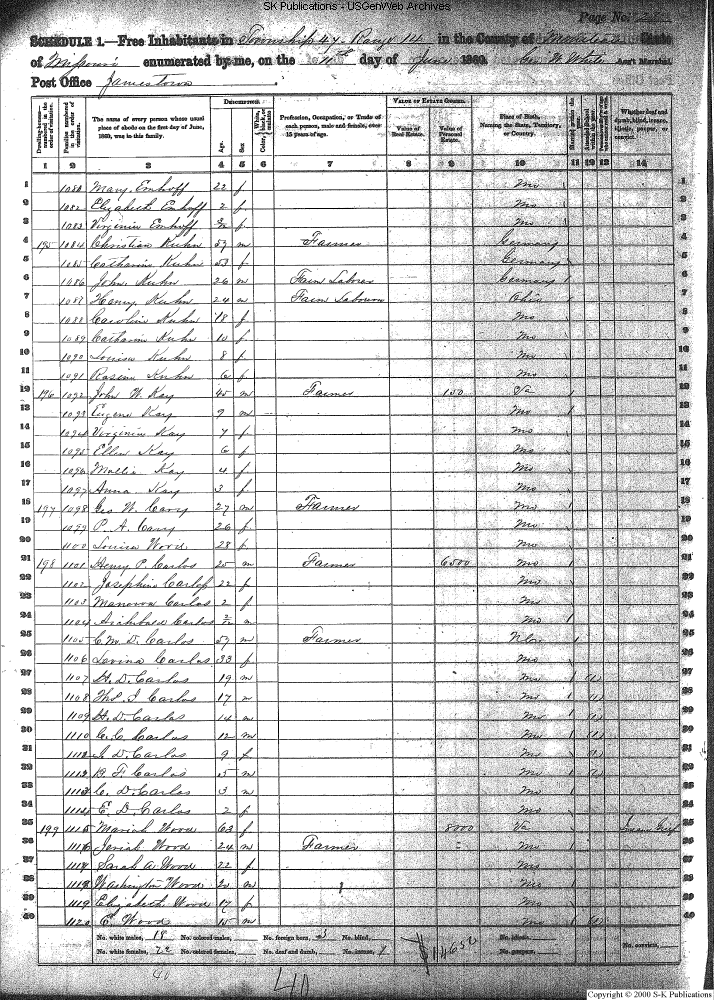 SK Publications - USGenWeb Archives
Page No.
SCHEDULE 1.—Free Inhabitants in Township 47 Range 14 in the County of Moniteau State
of Missouri enumerated by me, on the 11th day of June 1860. White Ass't Marshal.
Post Office Jamestown
Dwelling-houses—numbered in the order of visitation. Families numbered in the order of visitation. The name of every person whose usual place of abode on the first day of June, 1860, was in this family. DESCRIPTION. Age. Sex. Color, White, black, or mulatto. Profession, Occupation, or Trade of each person, male and female, over 15 years of age. VALUE OF ESTATE OWNED. Value of Real Estate. Value of Personal Estate. Place of Birth, Naming the State, Territory, or Country. Married within the year. Attended School within the year. Whether deaf and dumb, blind, insane, idiotic, pauper, or convict.
1 2 3 4 5 6 7 8 9 10 11 12 13 14
1 1080 Mary Emhoff 22 f Mo 1
2 1082 Elizabeth Emhoff 2 f Mo 2
3 1083 Virginia Emhoff f Mo 3
4 195 1084 Christian Kuhn 59 m Farmer Germany 4
5 1085 Catharine Kuhn 53 f Germany 5
6 1086 John Kuhn 26 m Farm Laborer Germany / 6
7 1087 Henry Kuhn 24 m Farm Labourer Ohio / 7
8 1088 Caroline Kuhn 18 f Mo 8
9 1089 Catharine Kuhn 10 f Mo 9
10 1090 Louisa Kuhn 8 f Mo 10
11 1091 Rosina Kuhn 6 f Mo 11
12 196 1092 John W. Kay 45 m Farmer 150 Va / 12
13 1093 Eugene Kay 9 m Mo / 13
14 1094 Virginia Kay 7 f Mo 14
15 1095 Ellen Kay 6 f Mo 15
16 1096 Mollie Kay 4 f Mo 16
17 1097 Anna Kay 3 f Mo 17
18 197 1098 Geo W. Cary 27 m Farmer Mo 18
19 1099 P. A. Cary 26 f Mo 19
20 1100 Louisa Wood 28 f Mo 20
21 198 1101 Henry P. Carlos 25 m Farmer 6500 Mo 21
22 1102 Josephine Carlos 22 f Mo 22
23 1103 Carlos 2 f Mo 23
24 1104 Archibald Carlos m Mo 24
25 1105 C. M. D. Carlos 59 m Farmer 25
26 1106 Levina Carlos 33 f Mo 26
27 1107 H. D. Carlos 19 m Mo / 27
28 1108 Carlos 17 m Mo / 28
29 1109 H. D. Carlos 14 m Mo / 29
30 1110 C. C. Carlos 12 m Mo / 30
31 1111 J. D. Carlos 9 f Mo / 31
32 1112 B. F. Carlos 5 m Mo / 32
33 1113 C. D. Carlos 3 m Mo 33
34 1114 E. D. Carlos 2 f Mo 34
35 199 1115 Mariah Wood 63 f 8000 Va 35
36 1116 Wood 24 m Farmer Mo 36
37 1117 Sarah A. Wood 22 f Mo 37
38 1118 Washington Wood 20 m Mo 38
39 1119 Elizabeth Wood 17 f Mo 39
40 1120 E. Wood 15 m Mo 40
No. white males, 18 No. colored males, No. foreign born, 3 No. blind,
No. white females, 22 No. colored females, No. deaf and dumb, No. insane, 1 $14650 No. convicts,
40 40
Copyright © 2000 S-K Publications